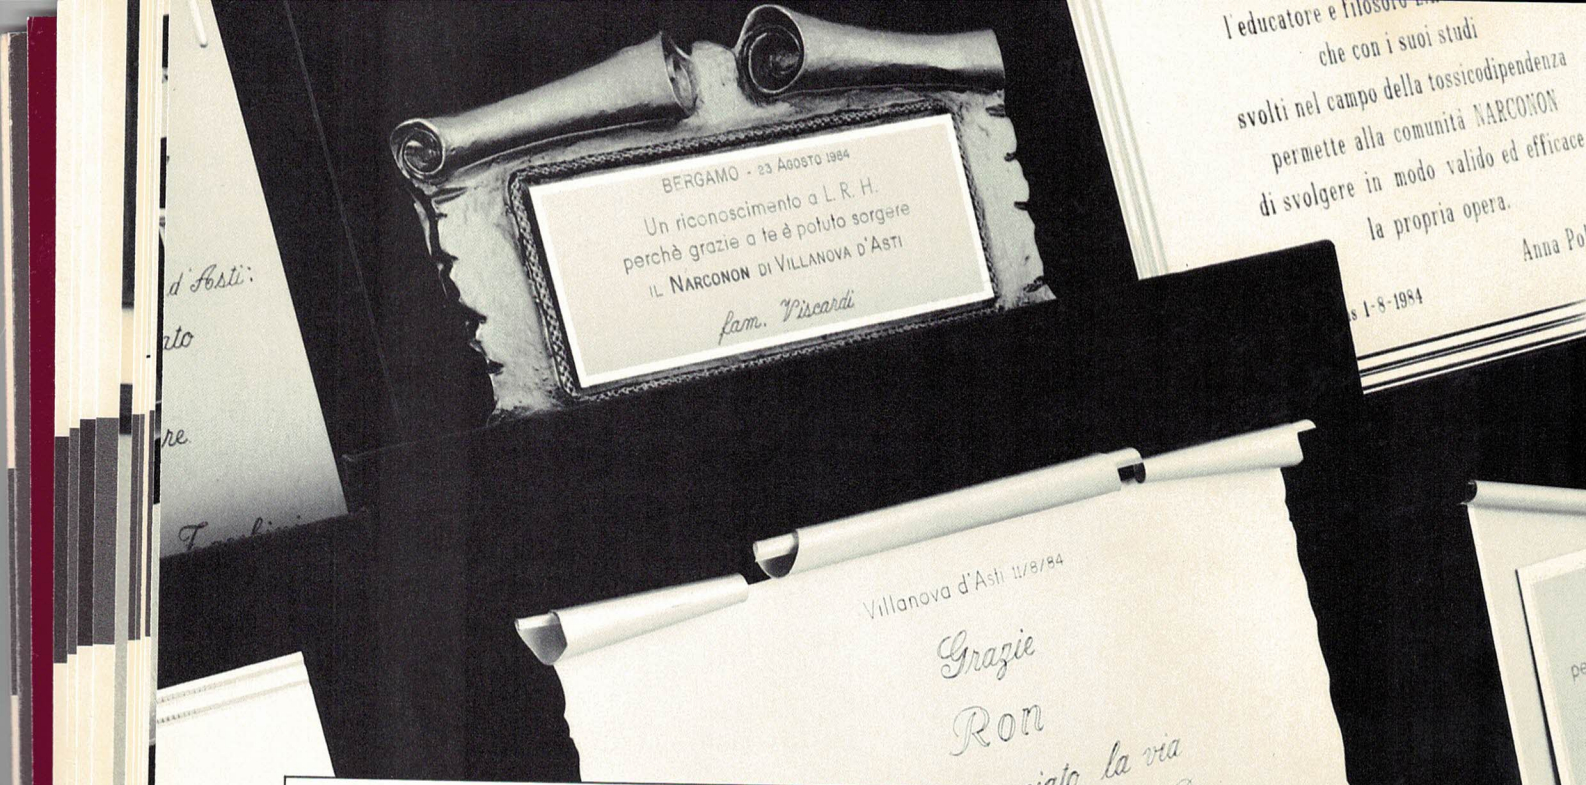 d'Asti:
re
BERGAMO - 23 AGOSTO 1984
Un riconoscimento a L. R. H.
perchè grazie a te è potuto sorgere
IL NARCONON DI VILLANOVA D'ASTI
fam. Viscardi
l'educatore e filosofo
che con i suoi studi
svolti nel campo della tossicodipendenza
permette alla comunità NARCONON
in modo valido ed efficace
di svolgere
la propria opera.
Anna
1-8-1984
Villanova d'Asti 11/8/84
Grazie
Ron
la via